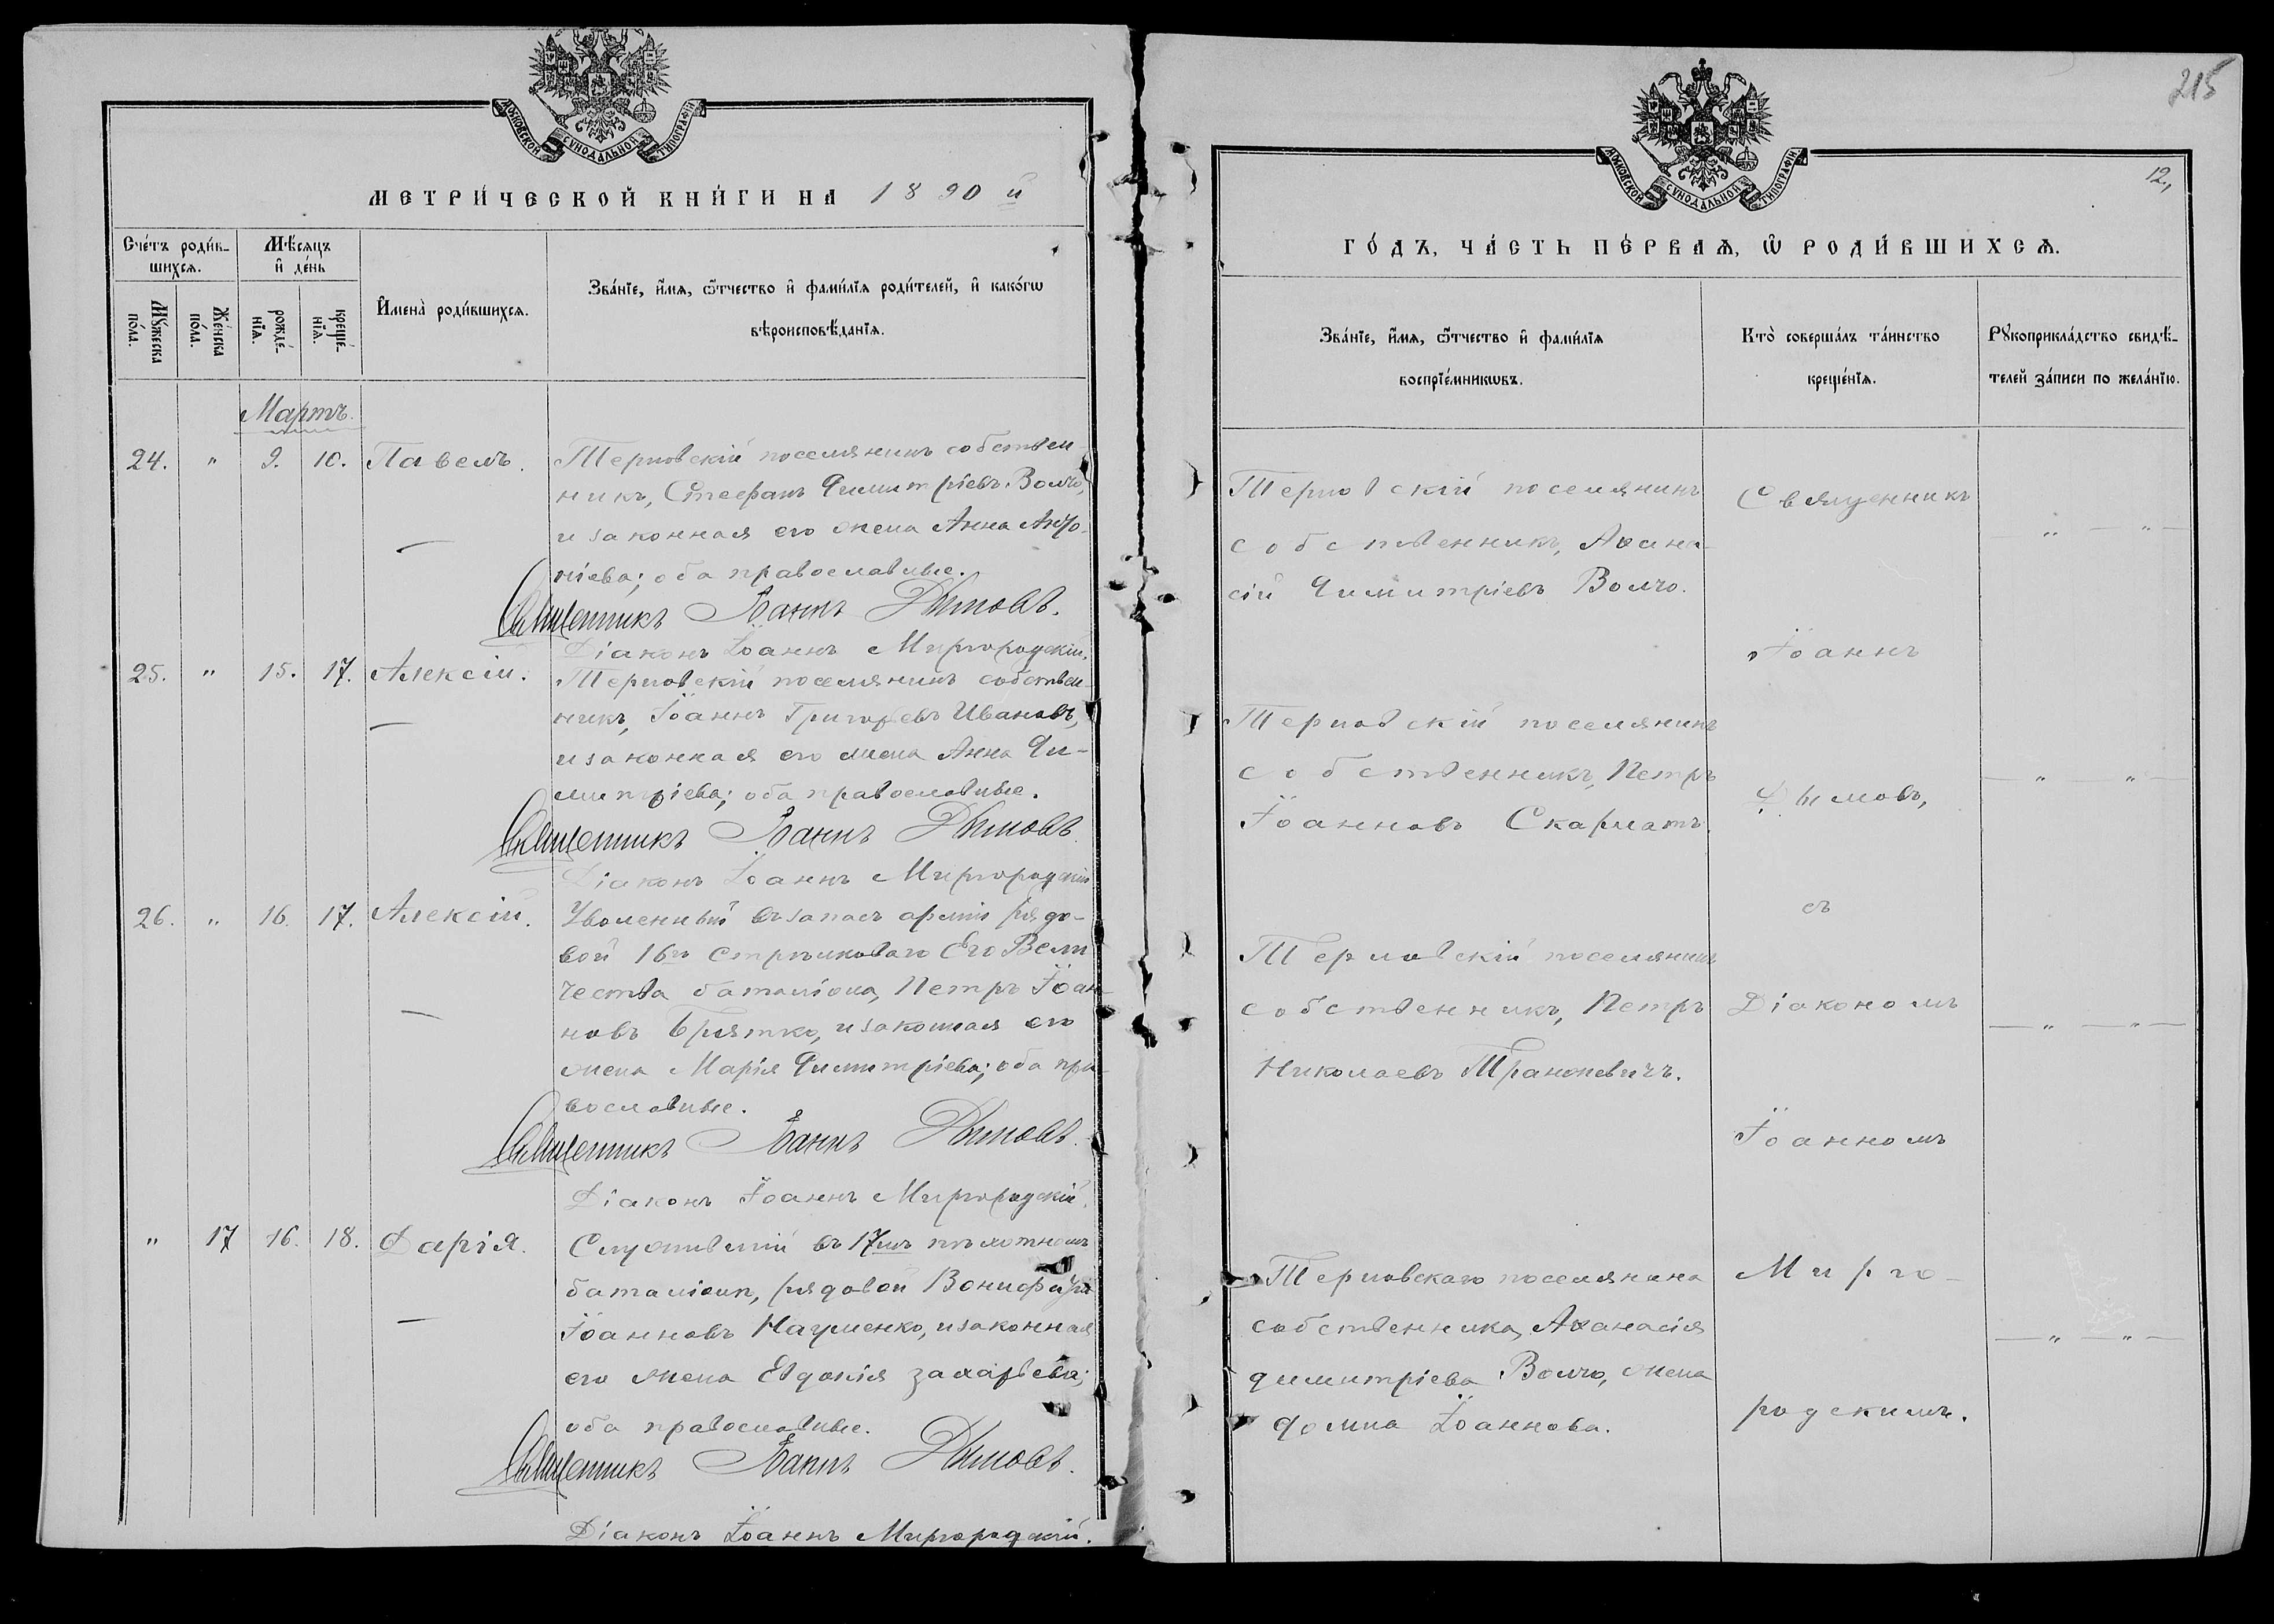 МОСКОВСКОЙ СѴНОДАЛЬНОЙ ТИПОГРАФІИ
МЕТРИ́ЧЕСКОЙ КНИ́ГИ НА 1890 й
Сче́тъ роди́в-
шихсѧ.
Мѣ́сяцъ
и҆ де́нь
Мꙋ́жеска
по́ла.
Же́нска
по́ла.
рожде́-
нїѧ.
креще́-
нїѧ.
И҆мена̀ роди́вшихсѧ.
Зва́нїе, и҆́мѧ, ѻ҆́тчество и҆ фами́лїѧ роди́телей, и҆ како́гѡ
вѣроисповѣ́данїѧ.
Мартъ.
24. " 9. 10. Павелъ.
Терновскій поселянинъ собствен
никъ, Стефанъ Димитріевъ Волчо,
и законная его жена Анна Анто-
ніева; оба православные.
Священникъ Іоаннъ Дымовъ.
Діаконъ Іоаннъ Миргородскій.
25. " 15. 17. Алексій.
Терновскій поселянинъ собствен-
никъ, Іоаннъ Григорьевъ Ивановъ,
и законная его жена Анна Ди-
митріева; оба православные.
Священникъ Іоаннъ Дымовъ
Діаконъ Іоаннъ Миргородскій
26. " 16. 17. Алексій.
Уволенный въ запасъ арміи рядо-
вой 16го Стрѣлковаго Его Вели
чества баталіона, Петръ Іоан-
новъ Брятко, и законная его
жена Марія Димитріева; оба пра-
вославные.
Священникъ Іоаннъ Дымовъ.
Діаконъ Іоаннъ Миргородскій.
" 17 16. 18. Дарія.
Служившій въ 17мъ пѣхотномъ
баталіонѣ, рядовой Вонифатій
Іоанновъ Науменко, и законная
его жена Евдокія Захарьева;
оба православные.
Священникъ Іоаннъ Дымовъ.
Діаконъ Іоаннъ Миргородскій.
215
МОСКОВСКОЙ СѴНОДАЛЬНОЙ ТИПОГРАФІИ
12,
ГО́ДЪ, ЧА́СТЬ ПЕ́РВАѦ, Ѡ҆ РОДИ́ВШИХСѦ.
Зва́нїе, и҆́мѧ, ѻ҆́тчество и҆ фами́лїѧ
воспрїе́мникѡвъ.
Кто̀ соверша́лъ та́инство
креще́нїѧ.
Рꙋкоприкла́дство свидѣ́-
телей за́писи по жела́нїю.
Терновскій поселянинъ
собственникъ, Аѳана-
сій Димитріевъ Волчо.
Терновскій поселянинъ
собственникъ, Петръ
Іоанновъ Скарлатъ.
Терновскій поселянинъ
собственникъ, Петръ
Николаевъ
Терновскаго поселянина
собственника, Аѳанасія
Димитріева Волчо, жена
Домна Іоаннова.
Священникъ
Іоаннъ
Дымовъ,
съ
Діакономъ
Іоанномъ
Мирго-
родскимъ.
— " — " —
— " — " —
— " — " —
— " — " —